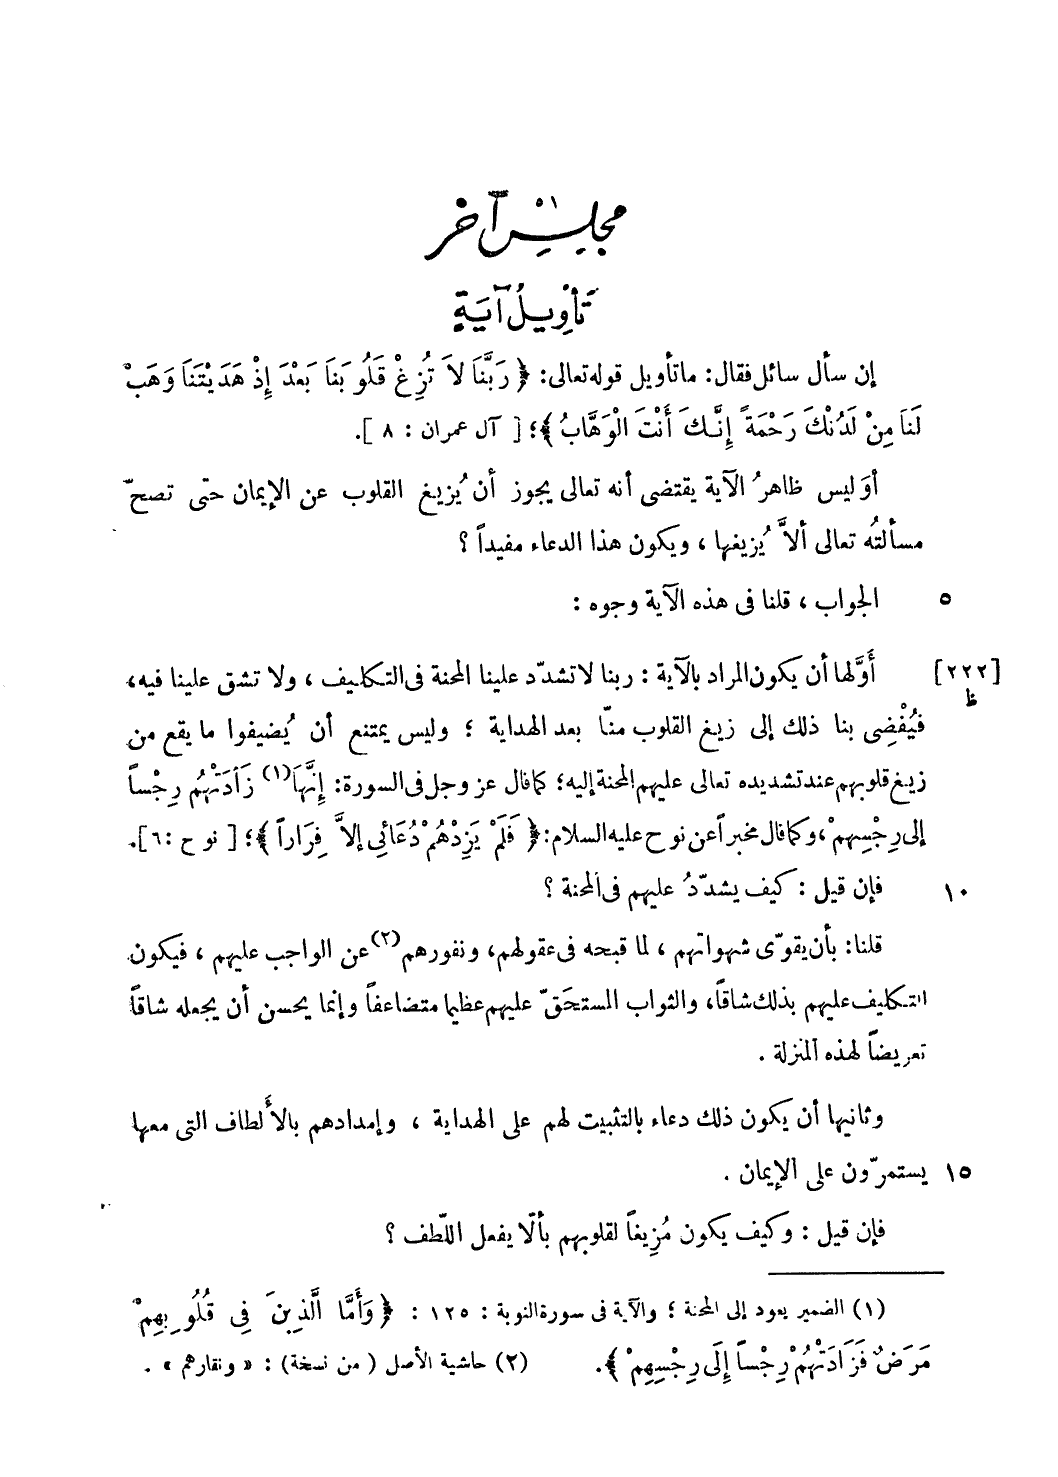 مجلس آخر ٥١
تأويل آية
إن سأل سائل فقال: ما تأويل قوله تعالى: ﴿ رَبَّنَا لاَ تُزِغْ قُلُوبَنَا بَعْدَ إِذْ هَدَيْتَنَا وَهَبْ
لَنَا مِنْ لَدُنْكَ رَحْمَةً إِنَّكَ أَنْتَ الْوَهَّابُ ﴾؛ [ آل عمران : ٨ ].
أوَ ليس ظاهرُ الآية يقتضى أنه تعالى يجوز أن يُزيغ القلوب عن الإيمان حتى تصحّ
مسألتُه تعالى ألاَّ يُزيغها ، ويكون هذا الدعاء مفيداً ؟
٥ الجواب ، قلنا فى هذه الآية وجوه :
[٢٢٢ ظ] أَوَّلها أن يكون المراد بالآية : ربنا لا تشدّد علينا المحنة فى التكليف ، ولا تشق علينا فيه،
فيُفْضِى بنا ذلك إلى زيغ القلوب منّا بعد الهداية ؛ وليس يمتنع أن يُضيفوا ما يقع من
زيغ قلوبهم عند تشديده تعالى عليهم المحنة إليه؛ كما قال عز وجل فى السورة: إِنَّهَا(١) زَادَتْهُم رِجْساً
إلى رِجْسِهِمْ، وكما قال مخبراً عن نوح عليه السلام: ﴿ فَلَمْ يَزِدْهُمْ دُعَائِى إلاَّ فِرَاراً ﴾؛ [ نوح :٦].
١٠ فإن قيل : كيف يشدّدُ عليهم فى المحنة ؟
قلنا: بأن يقوّى شهواتهم ، لما قبحه فى عقولهم، ونفورهم(٢) عن الواجب عليهم ، فيكون
التكليف عليهم بذلك شاقاً، والثواب المستحَقّ عليهم عظيما متضاعفاً وإنما يحسن أن يجعله شاقاً
تعريضاً لهذه المنزلة .
وثانيها أن يكون ذلك دعاء بالتثبيت لهم على الهداية ، وإمدادهم بالأَلطاف التى معها
١٥ يستمرّون على الإيمان .
فإن قيل : وكيف يكون مُزِيغاً لقلوبهم بألّا يفعل اللّطف ؟
(١) الضمير يعود إلى المحنة ؛ والآية فى سورة التوبة : ١٢٥ : ﴿ وَأَمَّا الَّذِينَ فِى قُلُوبِهِمْ
مَرَضٌ فَزَادَتْهُمْ رِجْساً إِلَى رِجْسِهِمْ ﴾. (٢) حاشية الأصل ( من نسخة) : « ونفارهم » .